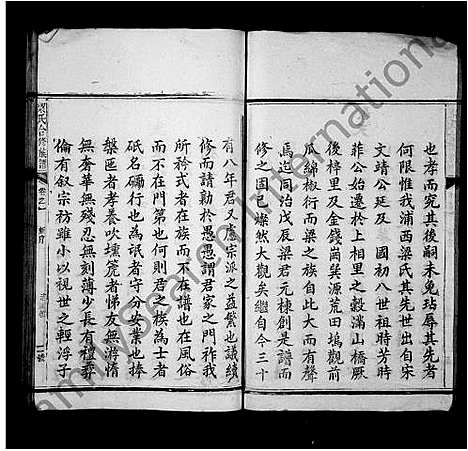 也孝而究其後嗣未免玷辱其先者
何限惟我浦西梁氏其先世出自宋
文靖公廷及 國初八世祖時芳時
菲公始遷於上相里之穀湍山橋厥
後梓里及金錢崗巽源荒田塢觀前
瓜綿椒衍而梁之族自此大而有聲
焉迄同治戊辰梁君元棟創是譜而
修之固已燦然大觀矣繼自今三十
有八年君又慮宗派之益繁也議續
修而請勷於愚愚謂君家之門祚我
所矜式者在族而不在譜也在風俗
而不在門第也何則君之族為士者
砥名礪行也為氓者守分安業也捧
槃匜者孝養吹壎篪者悌友無游惰
無奢華無殘忍無刻薄少長有禮彞
倫有叙宗祊雖小以視世之輕浮子
梁氏合修族譜
卷之一
新序
一
Research International